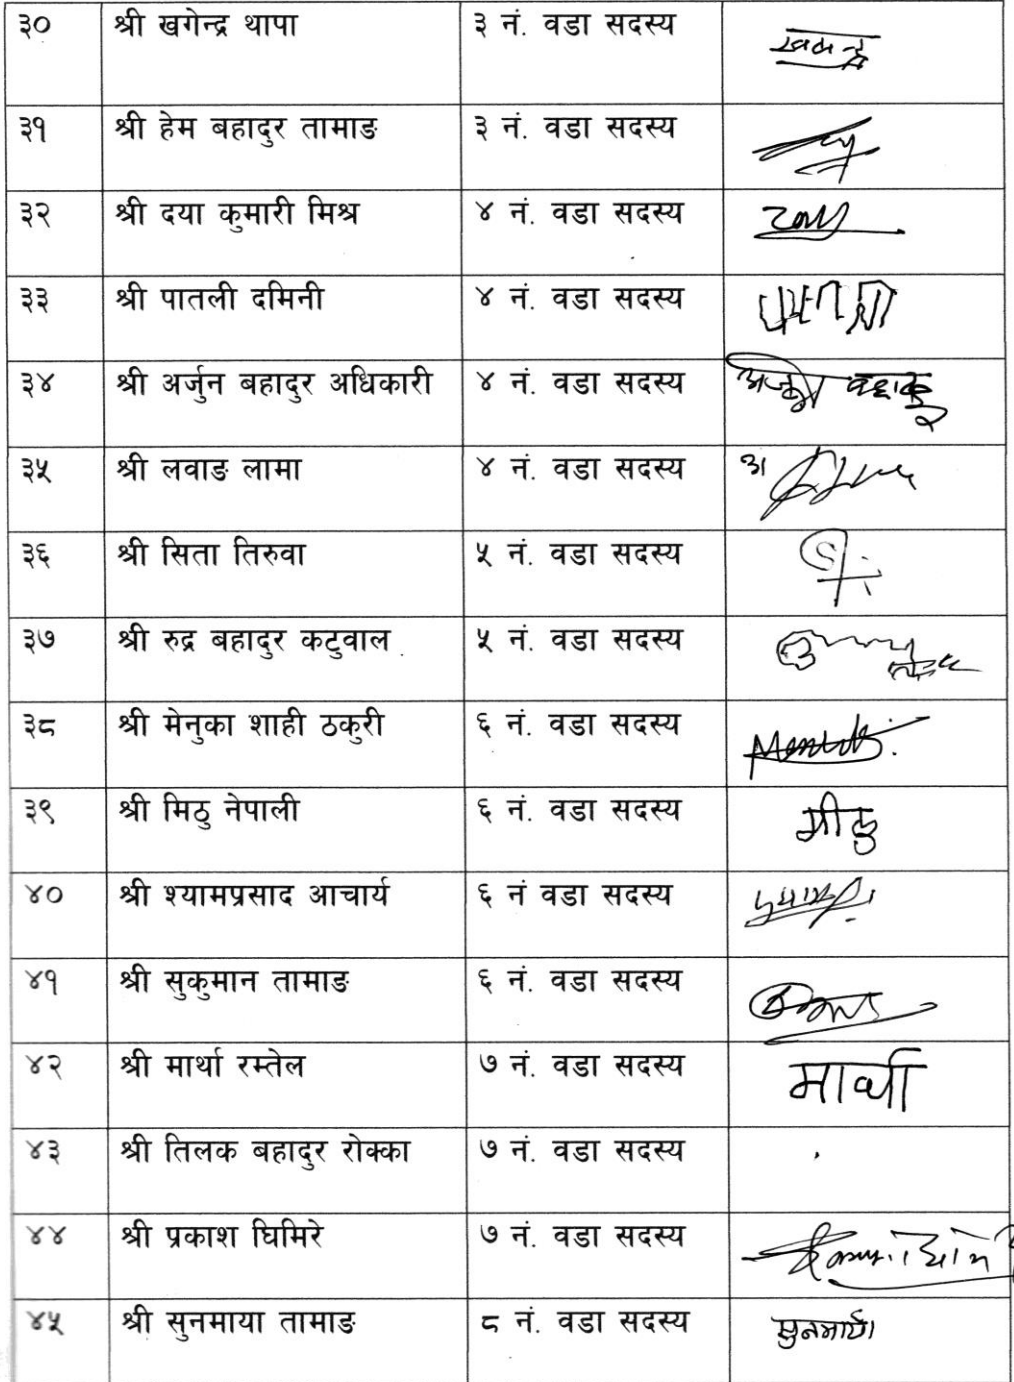 ३० श्री खगेन्द्र थापा ३ नं. वडा सदस्य
३१ श्री हेम बहादुर तामाङ ३ नं. वडा सदस्य
३२ श्री दया कुमारी मिश्र ४ नं. वडा सदस्य
३३ श्री पातली दमिनी ४ नं. वडा सदस्य
३४ श्री अर्जुन बहादुर अधिकारी ४ नं. वडा सदस्य
३५ श्री लवाङ लामा ४ नं. वडा सदस्य
३६ श्री सिता तिरुवा ५ नं. वडा सदस्य
३७ श्री रुद्र बहादुर कटुवाल ५ नं. वडा सदस्य
३८ श्री मेनुका शाही ठकुरी ६ नं. वडा सदस्य
३९ श्री मिठु नेपाली ६ नं. वडा सदस्य मीठु
४० श्री श्यामप्रसाद आचार्य ६ नं वडा सदस्य
४१ श्री सुकुमान तामाङ ६ नं. वडा सदस्य
४२ श्री मार्था रम्तेल ७ नं. वडा सदस्य मार्था
४३ श्री तिलक बहादुर रोक्का ७ नं. वडा सदस्य
४४ श्री प्रकाश घिमिरे ७ नं. वडा सदस्य
४५ श्री सुनमाया तामाङ ८ नं. वडा सदस्य सुनमाया